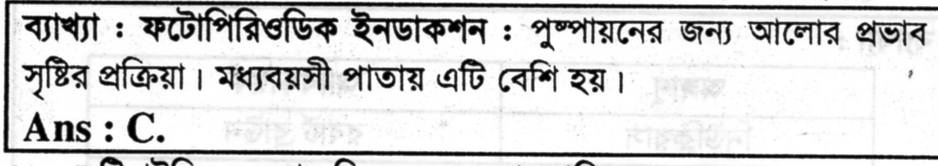 ব্যাখ্যা : ফটোপিরিওডিক ইনডাকশন : পুষ্পায়নের জন্য আলোর প্রভাব
সৃষ্টির প্রক্রিয়া। মধ্যবয়সী পাতায় এটি বেশি হয়।
Ans : C.